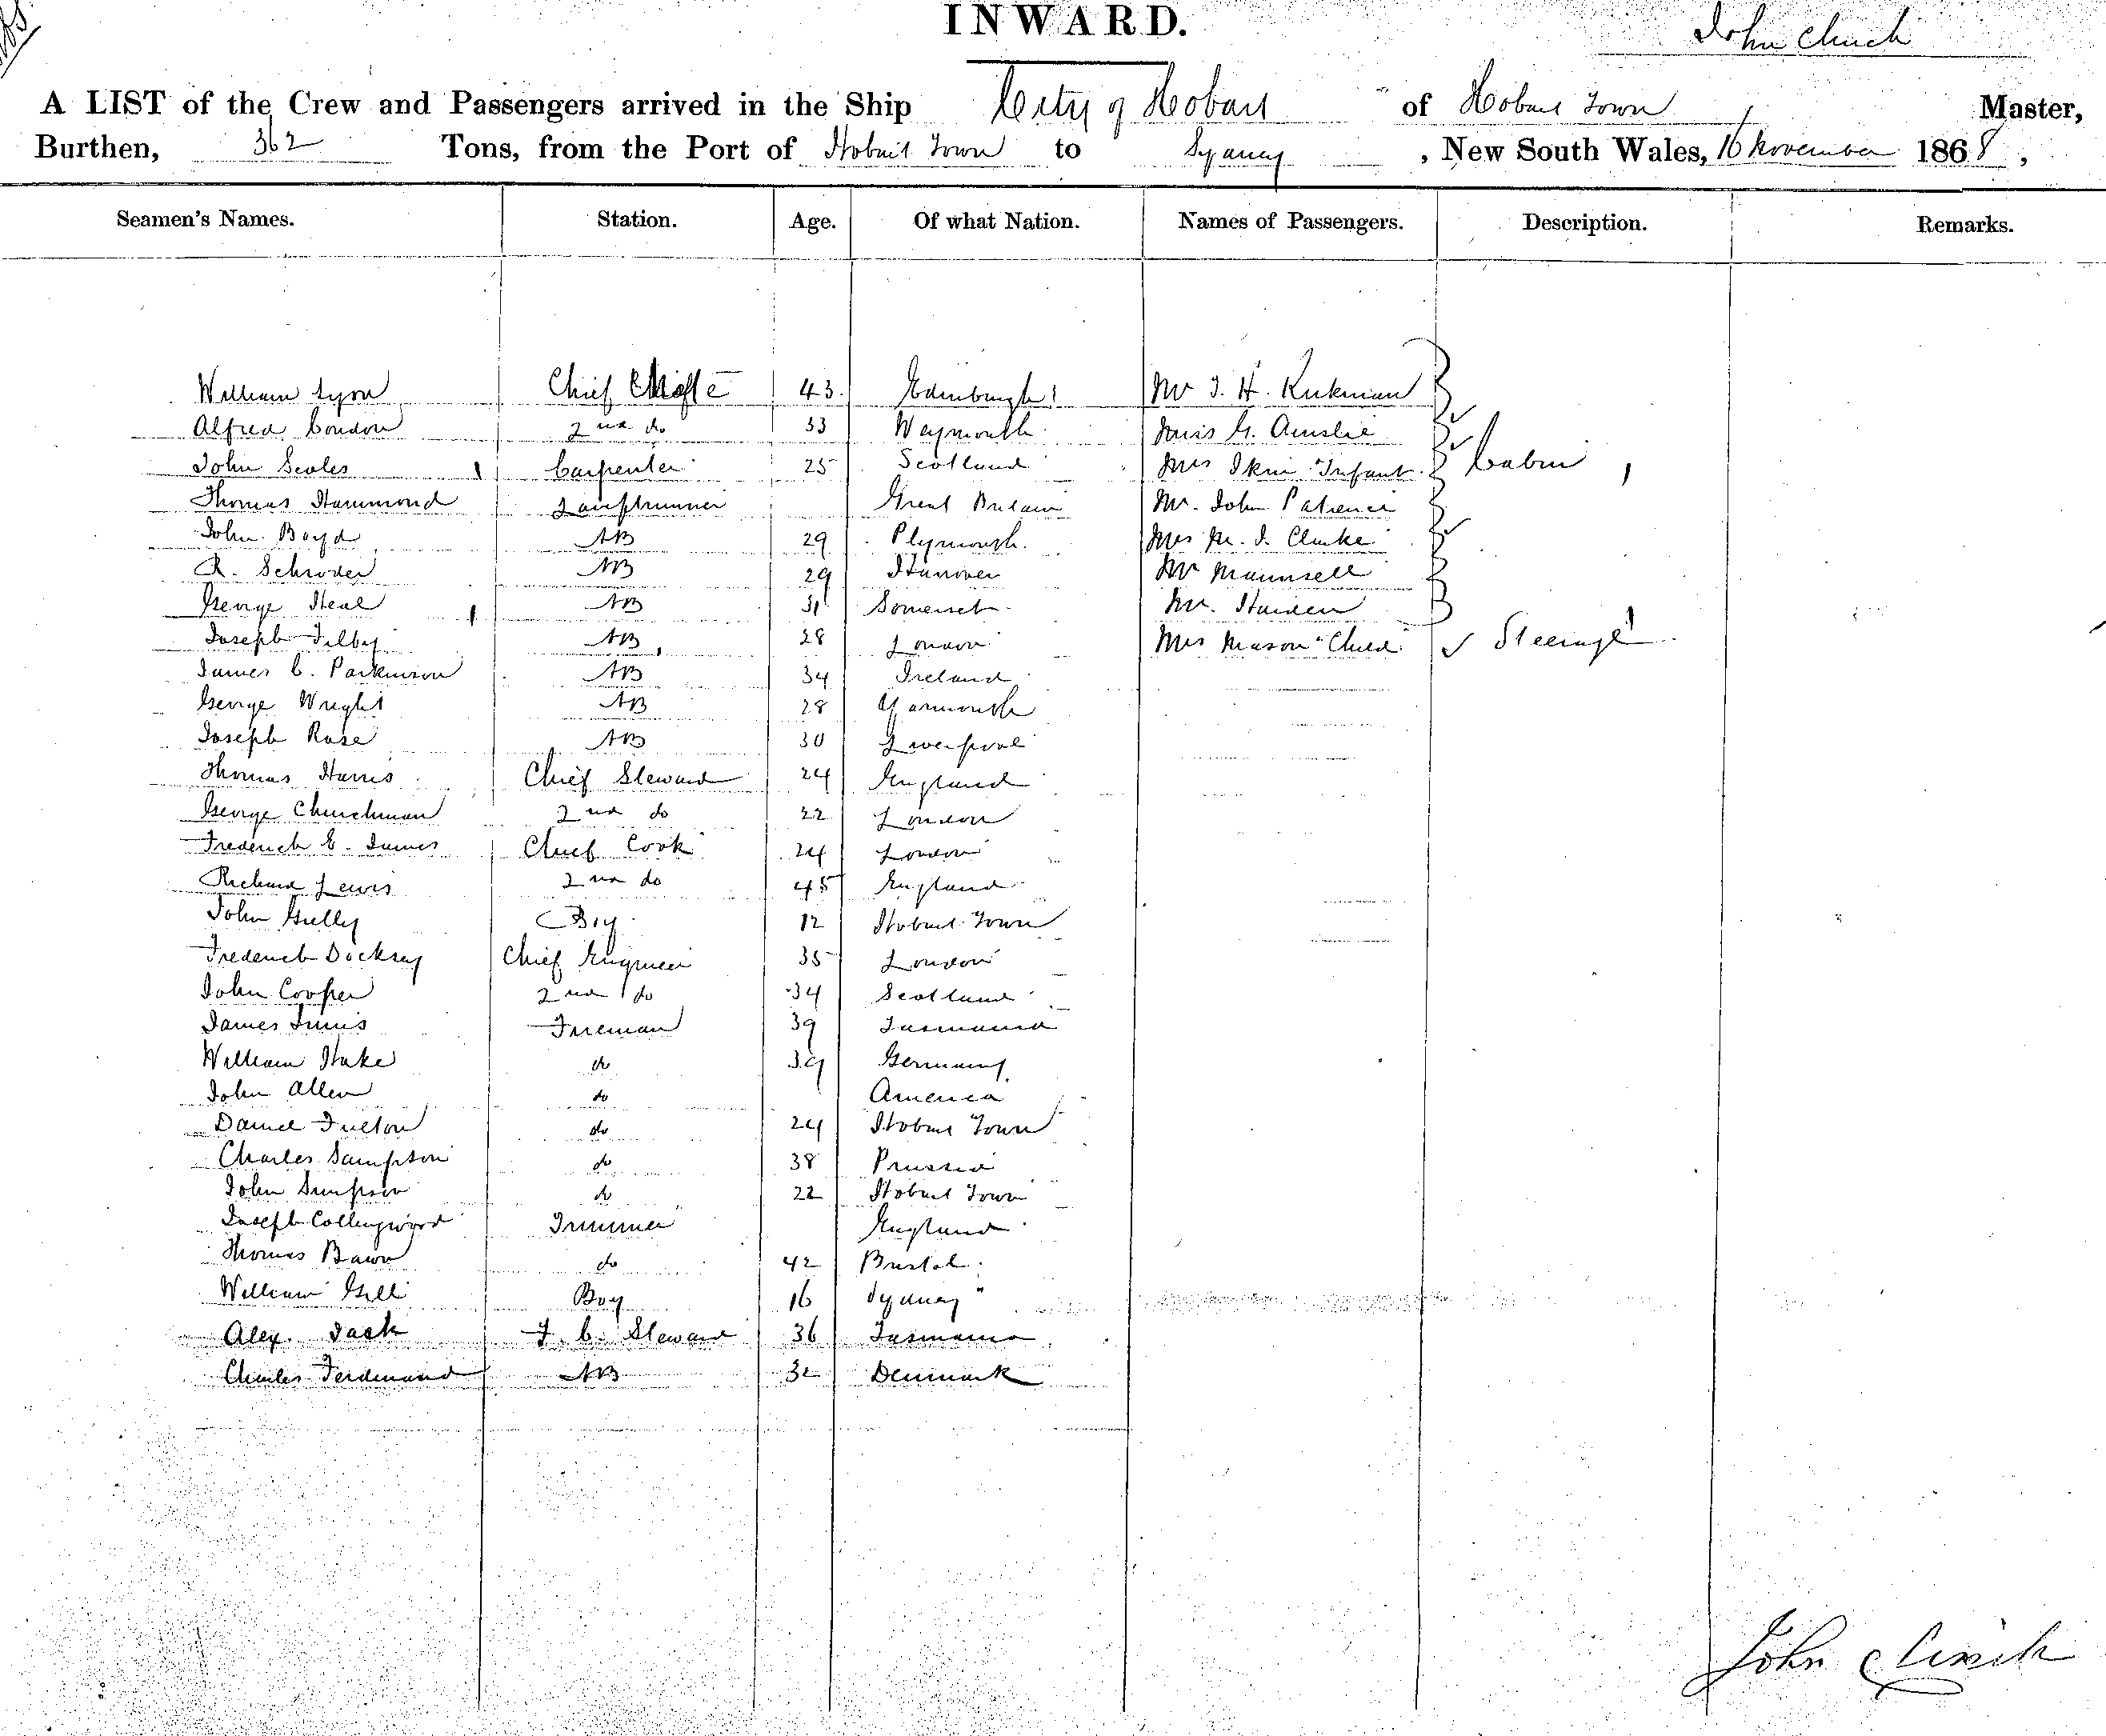 INWARD.
John Clinch
A LIST of the Crew and Passengers arrived in the Ship City of Hobart of Hobart Town Master,
Burthen, 362 Tons, from the Port of Hobart Town to Sydney , New South Wales, 16 November 1868 ,
Seamen's Names. Station. Age. Of what Nation. Names of Passengers. Description. Remarks.
William Lyon Chief Mate 43 Edinburgh Mr T. H. Kirkman
Alfred Condon 2nd do 33 Weymouth Miss G. Ainslie
John Scoles Carpenter 25 Scotland Mrs Infant Cabin
Thomas Hammond Lamptrimmer Great Britain Mr. John Patience
John Boyd AB 29 Plymouth Mrs M. J. Clarke
R. Schroder AB 29 Hanover Mr Maunsell
George Heal AB 31 Somerset Mr.
Joseph Tilby AB 28 London Mrs Mason " Child Steerage
James C. Parkinson AB 34 Ireland
George Wright AB 28 Yarmouth
Joseph Rose AB 30 Liverpool
Thomas Harris Chief Steward 24 England
George Churchman 2nd do 22 London
Frederick E. James Chief Cook 24 London
Richard Lewis 2nd do 45 England
John Gully Boy 12 Hobart Town
Frederick Docksey Chief Engineer 35 London
John Cooper 2nd do 34 Scotland
James Innis Fireman 39 Tasmania
William Hake do 39 Germany
John Allen do America
Daniel Fulton do 24 Hobart Town
Charles Sampson do 38 Prussia
John Simpson do 22 Hobart Town
Joseph Collingwood Trimmer England
Thomas Bawn do 42 Bristol
William Gill Boy 16 Sydney
Alex. Jack F. C. Steward 36 Tasmania
Charles Ferdinand AB 32 Denmark
John Clinch